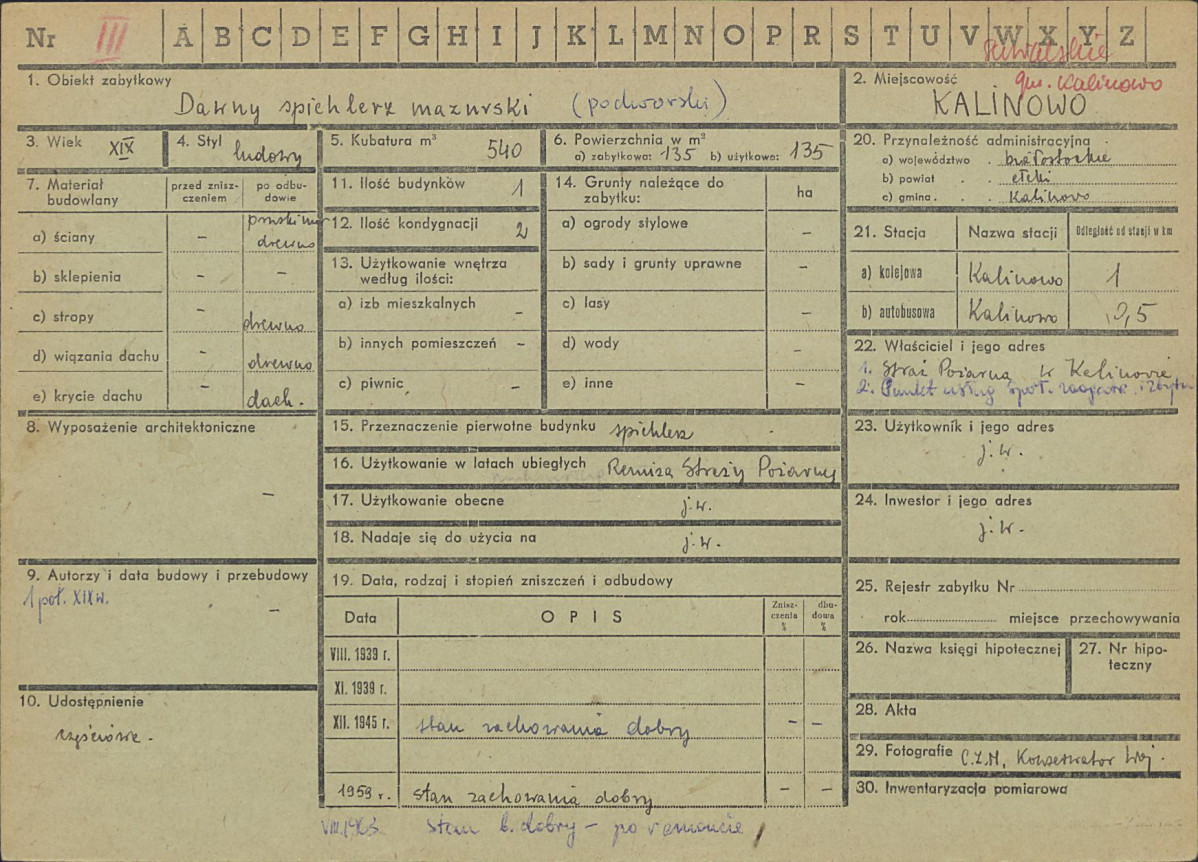 Nr III A B C D E F G H I J K L M N O P R S T U V W X Y Z
suwalskie
gm. Kalinowo
1. Obiekt zabytkowy
Dawny spichlerz mazurski (podworski)
2. Miejscowość
KALINOWO
3. Wiek XIX
4. Styl ludowy
5. Kubatura m³ 540
6. Powierzchnia w m²
a) zabytkowa: 135 b) użytkowa: 135
7. Materiał budowlany
przed zniszczeniem
po odbudowie
a) ściany - pruski mur
drewno
b) sklepienia - -
c) stropy - drewno
d) wiązania dachu - drewno
e) krycie dachu - dach.
8. Wyposażenie architektoniczne
-
9. Autorzy i data budowy i przebudowy
1 poł. XIX w. -
10. Udostępnienie
częściowe.
11. Ilość budynków 1
12. Ilość kondygnacji 2
13. Użytkowanie wnętrza
według ilości:
a) izb mieszkalnych -
b) innych pomieszczeń -
c) piwnic -
14. Grunty należące do
zabytku:
ha
a) ogrody stylowe -
b) sady i grunty uprawne -
c) lasy
d) wody -
e) inne -
15. Przeznaczenie pierwotne budynku spichlerz
16. Użytkowanie w latach ubiegłych Remiza Straży Pożarnej
17. Użytkowanie obecne j.w.
18. Nadaje się do użycia na j.w.
19. Data, rodzaj i stopień zniszczeń i odbudowy
Data OPIS Zniszczenia % dbudowa %
VIII. 1939 r.
XI. 1939 r.
XII. 1945 r. stan zachowania dobry - -
1959 r. stan zachowania dobry - -
stan b. dobry - po remoncie
20. Przynależność administracyjna
a) województwo . białostockie
b) powiat . . ełcki
c) gmina . . Kalinowo
21. Stacja Nazwa stacji Odległość od stacji w km
a) kolejowa Kalinowo 1
b) autobusowa Kalinowo 0,5
22. Właściciel i jego adres
1. Straż Pożarna w Kalinowie
2. Punkt usług Społ. zaopatrz. i zbytu
23. Użytkownik i jego adres
j.w.
24. Inwestor i jego adres
j.w.
25. Rejestr zabytku Nr
rok miejsce przechowywania
26. Nazwa księgi hipotecznej
27. Nr hipoteczny
28. Akta
29. Fotografie C.Z.M, Konserwator Woj.
30. Inwentaryzacja pomiarowa